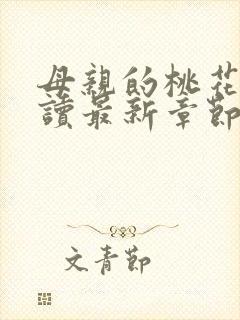 母親的桃花
讀最新章節
文青節